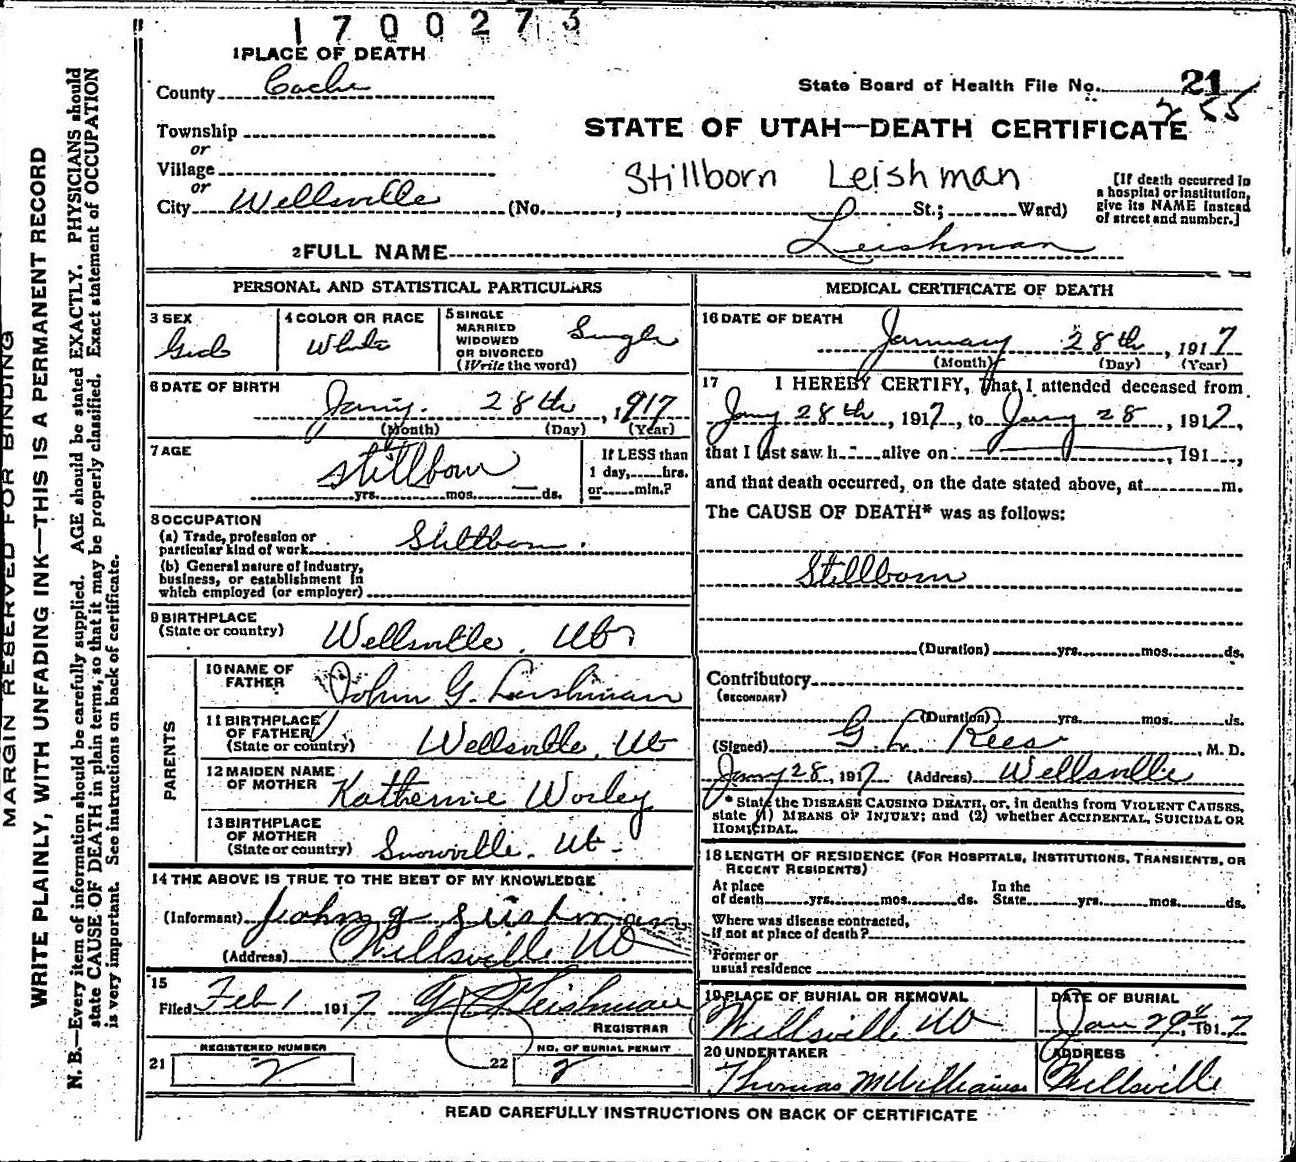 1700273
1 PLACE OF DEATH
County Cache
State Board of Health File No. 21
255
Township
or
STATE OF UTAH—DEATH CERTIFICATE
Village
or
Stillborn Leishman
City Wellsville (No. , St.; Ward)
[If death occurred in
a hospital or institution,
give its NAME instead
of street and number.]
2 FULL NAME Leishman
MARGIN RESERVED FOR BINDING
WRITE PLAINLY, WITH UNFADING INK—THIS IS A PERMANENT RECORD
N. B.—Every item of information should be carefully supplied. AGE should be stated EXACTLY. PHYSICIANS should
state CAUSE OF DEATH in plain terms, so that it may be properly classified. Exact statement of OCCUPATION
is very important. See instructions on back of certificate.
PERSONAL AND STATISTICAL PARTICULARS
3 SEX
Girl
4 COLOR OR RACE
White
5 SINGLE
MARRIED
WIDOWED
OR DIVORCED
(Write the word)
Single
6 DATE OF BIRTH
Jany. 28th, 1917
(Month) (Day) (Year)
7 AGE
Stillborn
yrs. mos. ds.
If LESS than
1 day, hrs.
or min.?
8 OCCUPATION
(a) Trade, profession or
particular kind of work Stillborn.
(b) General nature of industry,
business, or establishment in
which employed (or employer)
9 BIRTHPLACE
(State or country) Wellsville. Ut
PARENTS
10 NAME OF
FATHER John G. Leishman
11 BIRTHPLACE
OF FATHER
(State or country) Wellsville, Ut
12 MAIDEN NAME
OF MOTHER Katherine Worley
13 BIRTHPLACE
OF MOTHER
(State or country) Snowville. Ut.
14 THE ABOVE IS TRUE TO THE BEST OF MY KNOWLEDGE
(Informant) John G Leishman
(Address) Wellsville Ut
15
Filed Feb 1 1917 Leishman
REGISTRAR
REGISTERED NUMBER
21 2
NO. OF BURIAL PERMIT
22 2
MEDICAL CERTIFICATE OF DEATH
16 DATE OF DEATH
January 28th, 1917
(Month) (Day) (Year)
17 I HEREBY CERTIFY, That I attended deceased from
Jany 28th, 1917, to Jany 28, 1917,
that I last saw h alive on , 191 ,
and that death occurred, on the date stated above, at m.
The CAUSE OF DEATH* was as follows:
Stillborn
(Duration) yrs. mos. ds.
Contributory
(SECONDARY)
(Duration) yrs. mos. ds.
(Signed) G. L. Rees, M. D.
Jany 28, 1917 (Address) Wellsville
* State the DISEASE CAUSING DEATH, or, in deaths from VIOLENT CAUSES,
state (1) MEANS OF INJURY; and (2) whether ACCIDENTAL, SUICIDAL OR
HOMICIDAL.
18 LENGTH OF RESIDENCE (FOR HOSPITALS, INSTITUTIONS, TRANSIENTS, OR
RECENT RESIDENTS)
At place
of death yrs. mos. ds.
In the
State yrs. mos. ds.
Where was disease contracted,
if not at place of death?
Former or
usual residence
19 PLACE OF BURIAL OR REMOVAL
Wellsville Ut
DATE OF BURIAL
Jan 29, 1917
20 UNDERTAKER
Thomas McWilliams
ADDRESS
Wellsville
READ CAREFULLY INSTRUCTIONS ON BACK OF CERTIFICATE